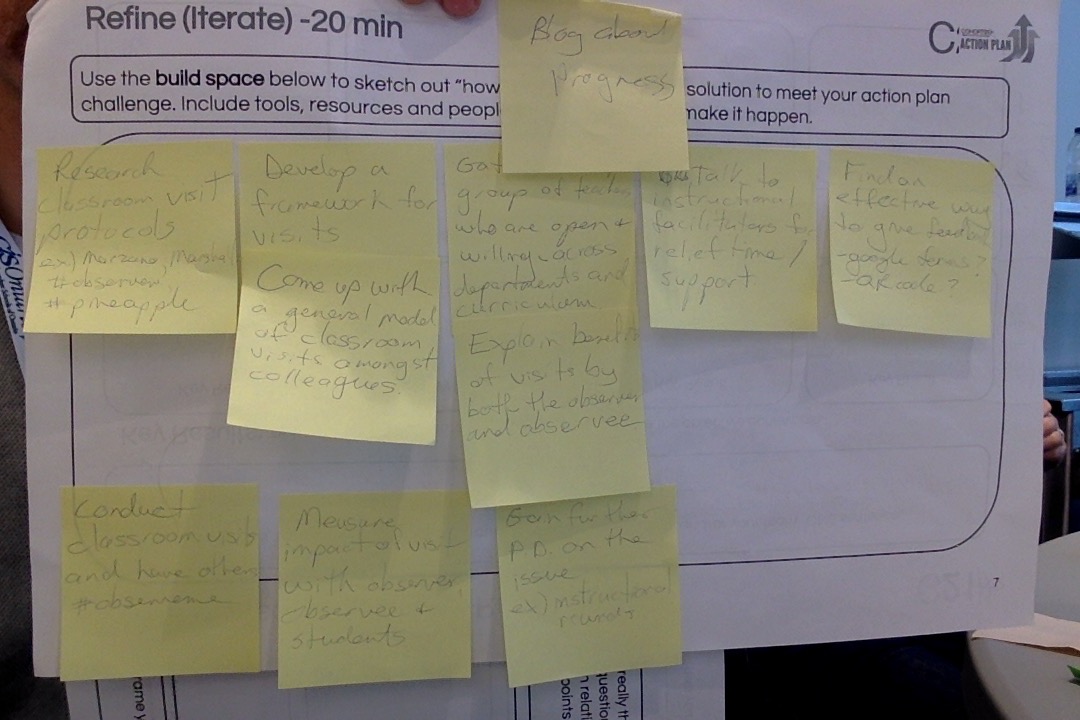 Refine (Iterate) -20 min
Blog about
progress
ACTION PLAN
Use the build space below to sketch out "how solution to meet your action plan
challenge. Include tools, resources and peopl make it happen.
Research
classroom visit
protocols
ex) Marzano, Marshall
#observeme,
#pineapple
Develop a
framework for
visits
Come up with
a general model
of classroom
visits amongst
colleagues.
Gat
group of teachers
who are open +
willing across
departments and
curriculum
Explain benefits
of visits by
both the observer
and observee
Talk to
instructional
facilitators for
relief time/
support
Find an
effective way
to give feedback
-google forms?
-QR code?
Conduct
classroom visits
and have others
#observeme
Measure
impact of visit
with observer,
observee +
students
Gain further
P.D. on the
issue
ex) instructional
rounds
7
rame y
points
n relati
question
really th